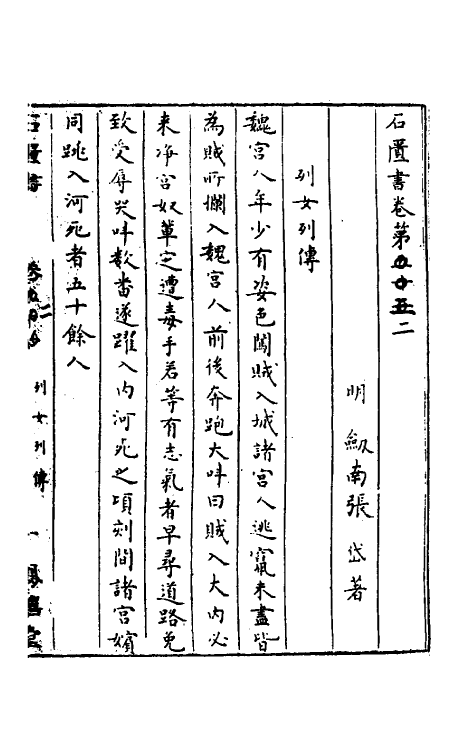 石匱書卷第五十五二
明 劔南張 岱著
列女列傳
魏宮人年少有姿色闖賊入城諸宮人逃竄未盡皆
為賊所攔入魏宮人前後奔跑大呌曰賊入大內必
来淨宮奴輩定遭毒手若等有志氣者早尋道路免
致受辱哭呌數畨遂躍入內河死之頃刻間諸宮嬪
同跳入河死者五十餘人
石匱書 列女列傳 一